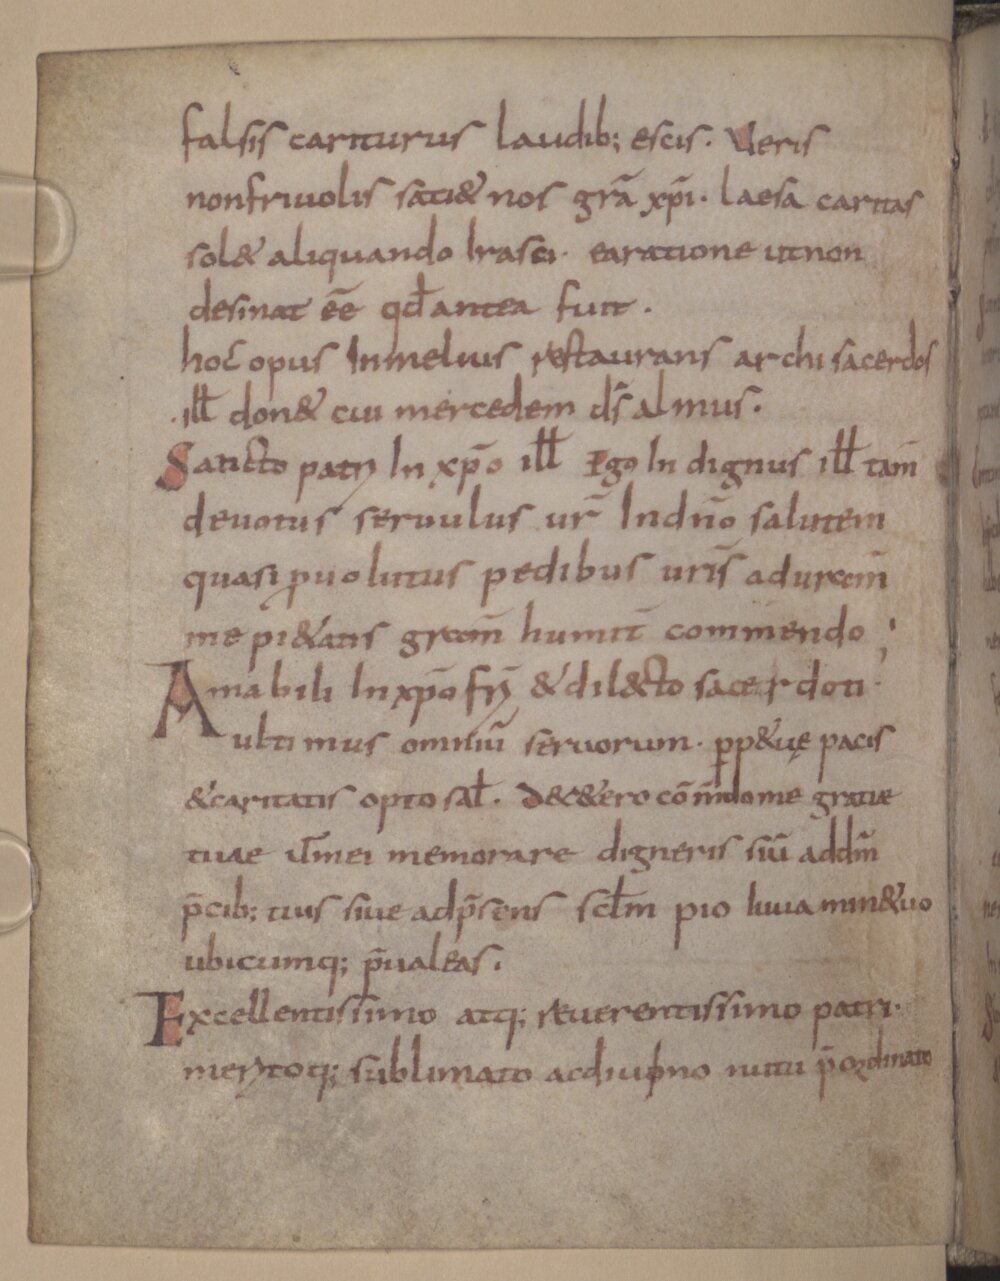 falsis cariturus laudib; escis. Ueris
nonfriuolis sati& nos grã xp̃i. laesa caritas
sol& aliquando Irasci. earatione utnon
desinat ẽe qđ antea fuit.
hoc opus Inmelius restaurans archi sacerdos
.iłł don& cui mercedem d̃s almus.
Sancto patri In xp̃o iłł Ego In dignus iłł tam̃
deuotus seruulus ur̃ Indñõ salutem
quasi puolutus pedibus urĩs ad urãm
me pi&atis gr̃am humit̃ commendo ;
Amabili Inxp̃o frĩ & dil&cto sacerdoti.
ultimus omniũ seruorum. pp&uę pacis
&caritatis opto sał. D&c&ero cõm̃do me gratiae
tuae ut̃ mei memorare digneris siũ add̃m
p̃cib; tuis siue adp̃sens scłm pio Iuuamin& uo
ubicumq; p̃ualeas.
Excellentissimo atq; reuerentissimo patri.
meritoq; sublimato acdiuino nutu p̃ordinato